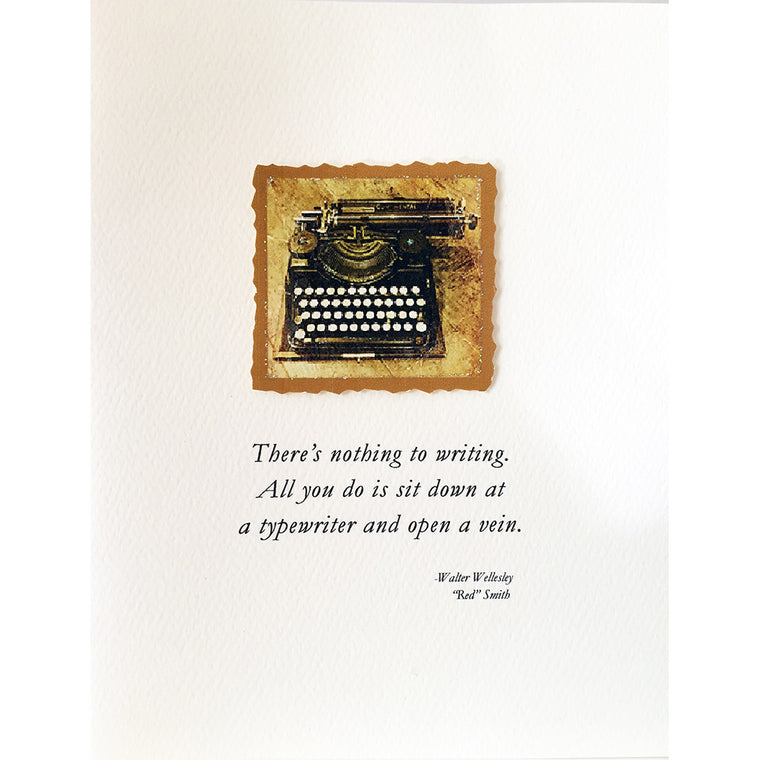 CONTINENTAL
There's nothing to writing.
All you do is sit down at
a typewriter and open a vein.
-Walter Wellesley
"Red" Smith